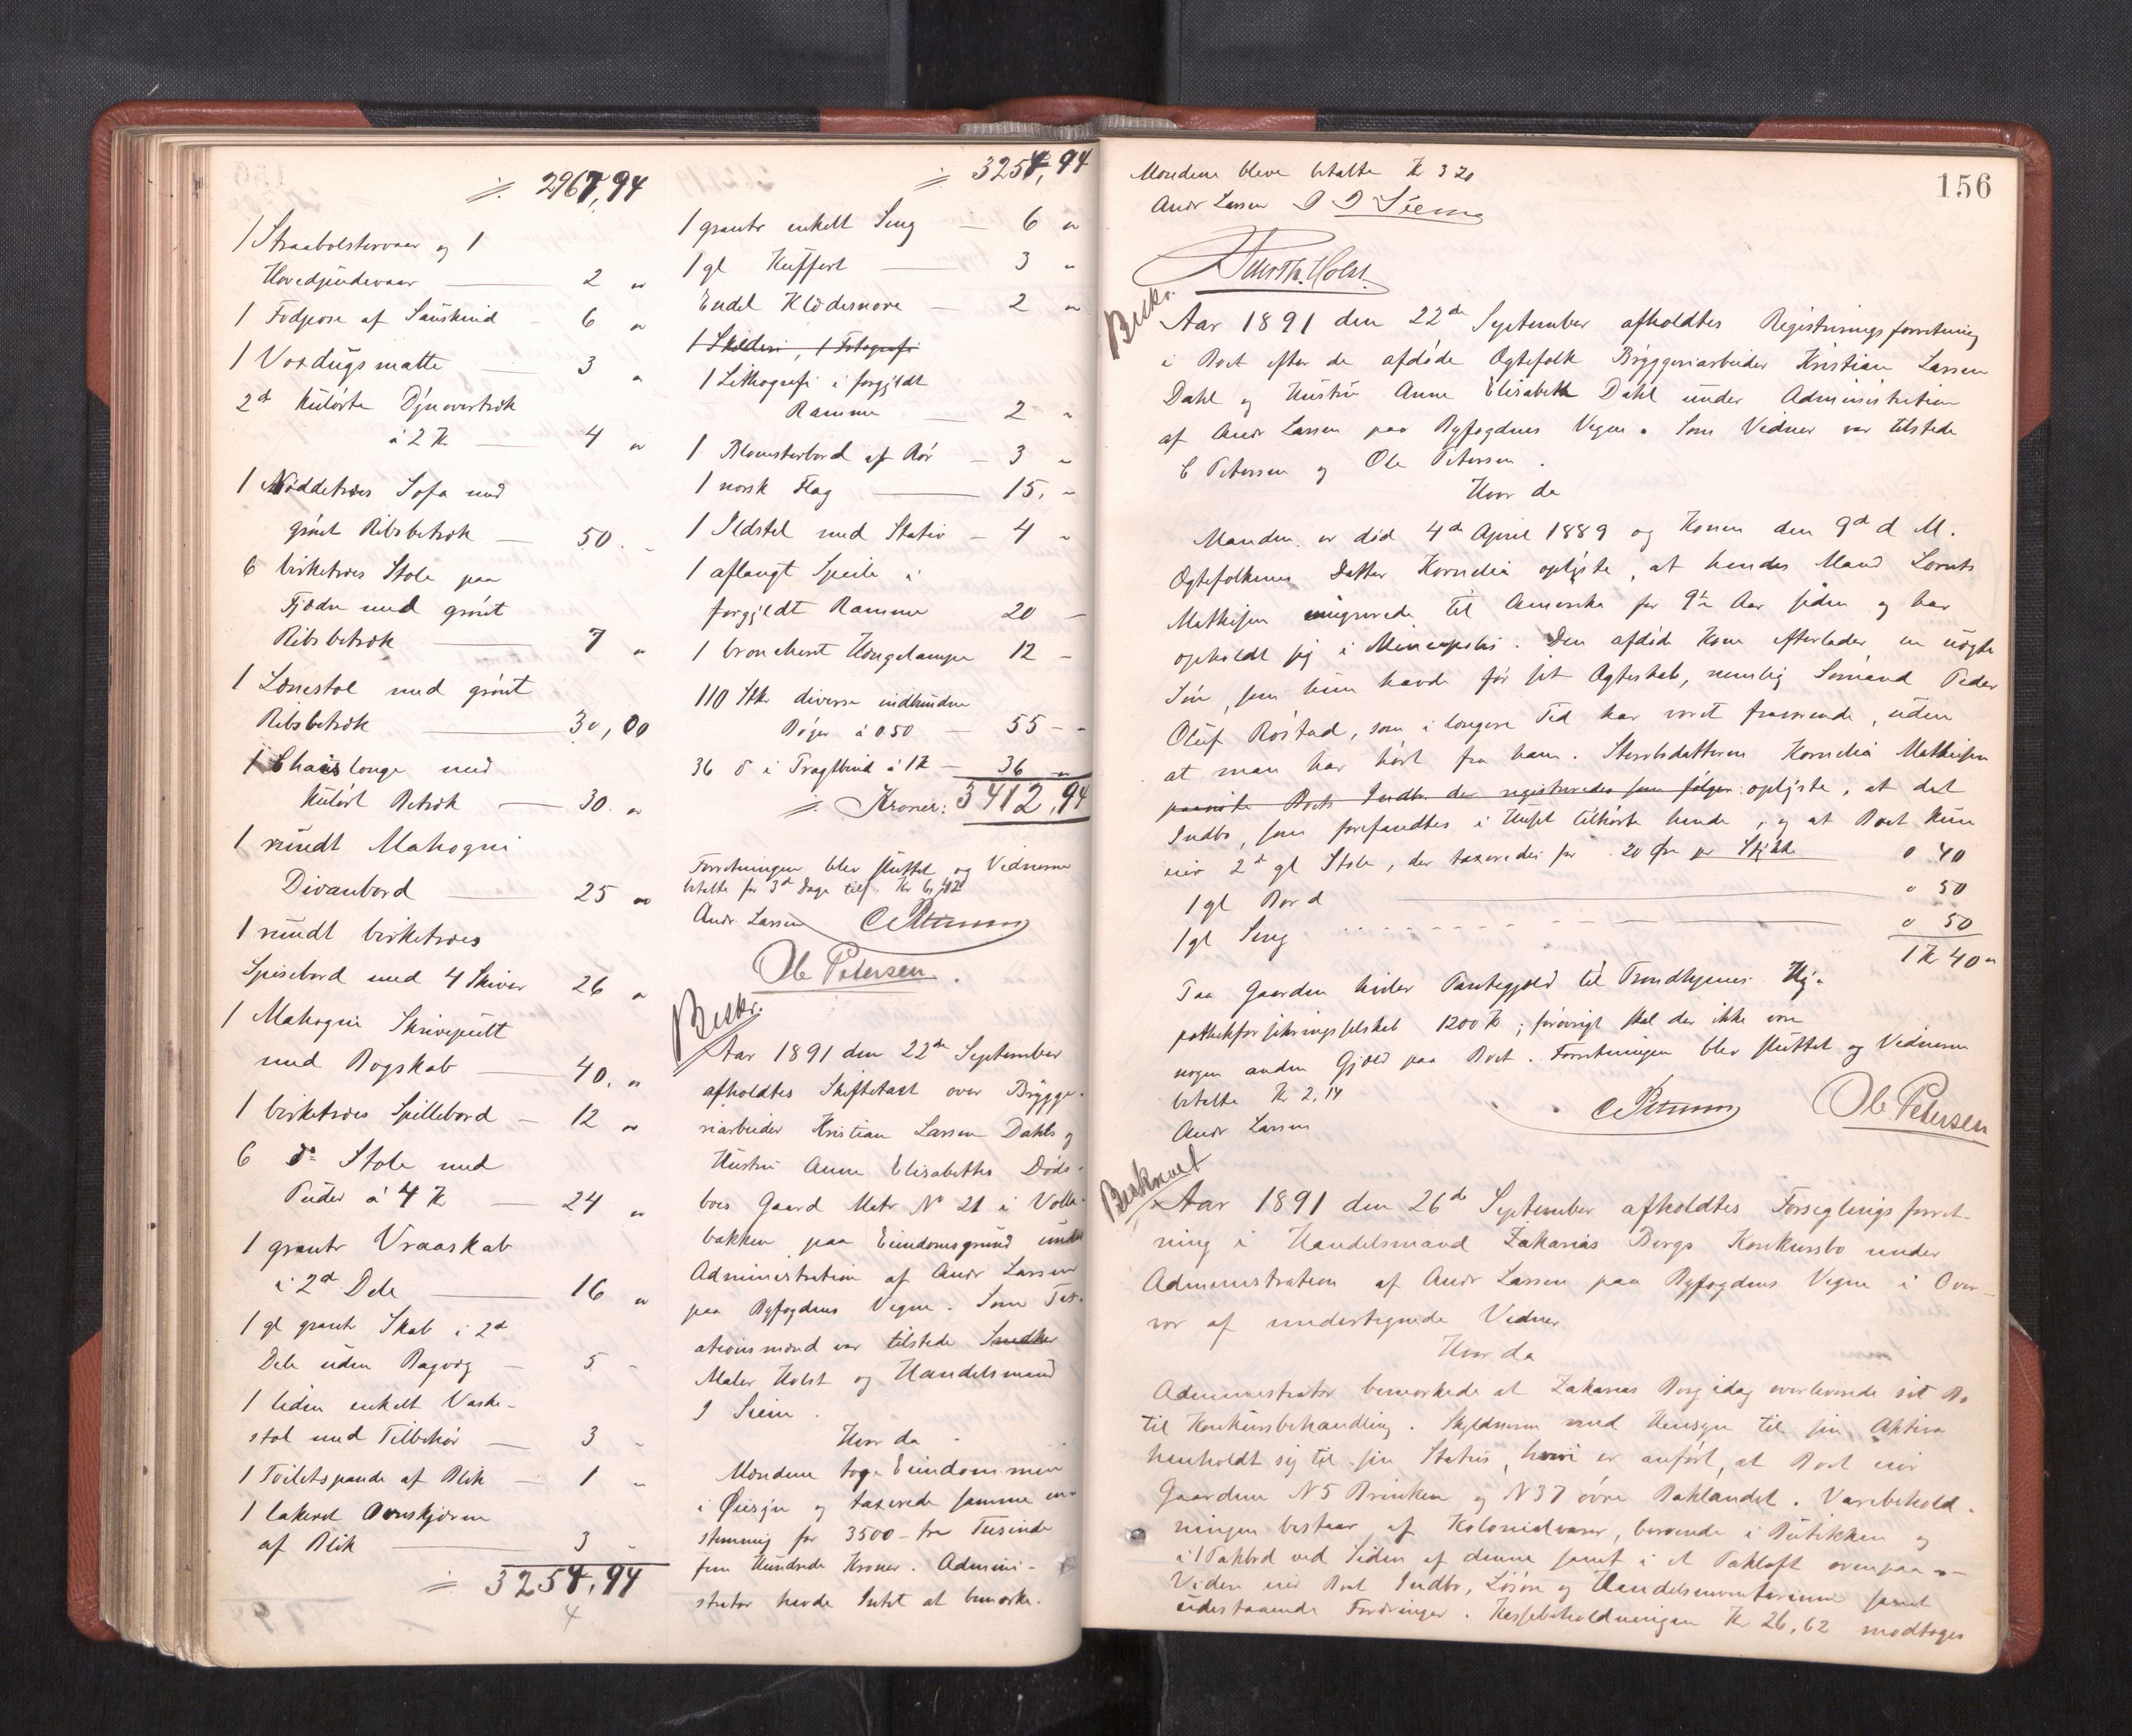 ⁒ 2967,94
1 Straabolstervaar og 1
Hovedpudevaar — 2 "
1 Fodpose af Sauskind — 6 "
1 Voxdugsmatte — 3 "
2de kulørte Dynovertræk
à 2 Kr — 4 "
1 Nøddetræes Sofa med
grønt Ribsbetræk — 50. "
6 birketræes Stole paa
Fjedre med grønt
Ribsbetræk — 7 "
1 Lænestol med grønt
Ribsbetræk — 30,00
1 Chaiselonge med
kulørt Betræk — 30. "
1 rundt Mahogni
Divanbord — 25 "
1 rundt birketræes
Spisebord med 4 Skiver 26 "
1 Mahogni Skrivepult
med Bogskab — 40. "
1 birketræes Spillebord — 12 "
6 do Stole med
Puder à 4 Kr — 24 "
1 grantr Vraaskab
i 2de Dele — 16 "
1 gl grantr Skab i 2de
Dele uden Bagvæg — 5 "
1 liden enkelt Vaske-
stol med Tilbehør — 3 "
1 Toiletspande af Blik — 1 "
1 lakeret Ovnskjærm
af Blik — 3 "
⁒ 3254,94
4
⁒ 3254,94
1 grantr enkelt Seng — 6 "
1 gl Kuffert — 3 "
Endel Klædesnore — 2 "
1 Skilderi, 1 Fotografi
1 Lithografi i forgyldt
Ramme — 2 "
1 Blomsterbord af Rør — 3 "
1 norsk Flag — 15. "
1 Ildstel med Stativ — 4 "
1 aflangt Speile i
forgyldt Ramme 20 —
1 broncheret Hængelampe 12 —
110 Stkr diverse indbundne
Bøger à 0 50 — 55 - "
36 do i Pragtbind à 1 Kr — 36 "
⁒ Kroner: 3412,94
Forretningen blev sluttet og Vidnerne
betalte for 3de Dage tils. Kr
Andr. Lassen C Petersen
Ole Petersen.
Beskr.
Aar 1891 den 22de September
afholdtes Skiftetaxt over Brygge-
riarbeider Kristian Larsen Dahls og
Hustru Anne Elisabeths Døds-
boes Gaard Matr No 21 i Volla-
bakken paa Eiendomsgrund under
Administration af Andr Lassen
paa Byfogdens Vegne. Som Tax-
ationsmænd var tilstede Snedker
Maler Holst og Handelsmand
J Siem.
Hvor da
Mændene tog Eiendommen
i Øiesyn og taxerede samme en-
stemmig for 3500 - tre Tusinde
fem Hundrede Kroner. Admini-
strator havde Intet at bemærke.
156
Mændene bleve betalte Kr 3 20
Andr Lassen J D Siem
Holst.
Beskr.
Aar 1891 den 22de September afholdtes Registreringsforretning
i Boet efter de afdøde Ægtefolk Bryggeriarbeider Kristian Larsen
Dahl og Hustru Anne Elisabeth Dahl under Administration
af Andr Lassen paa Byfogdens Vegne. Som Vidner var tilstede
C Petersen og Ole Petersen.
Hvor da
Manden er død 4de April 1889 og Konen den 9de d M.
Ægtefolkenes Datter Kornelia oplyste, at hendes Mand Lornts
Mathisen emigrerede til Amerika for 9 ½ Aar siden og har
opholdt sig i Mineapolis. Den afdøde Kone efterlader en uægte
Søn, som hun havde før sit Ægteskab, nemlig Sømand Peder
Oluf Røstad, som i længere Tid har været fraværende, uden
at man har hørt fra ham. Stervbodatteren Kornelia Mathisen
paaviste Boets Indbo der registreredes som følger: oplyste, at det
Indbo, som forefandtes i Huset tilhørte hende, og at Boet kun
eier 2de gl Stole, der taxeredes for 20 Øre pr Stykke 0 40
1 gl Bord — 0 50
1 gl Seng — 0 50
1 Kr 40 "
Paa Gaarden hviler Pantegjæld til Trondhjems Hy-
pothekforsikringsselskab 1200 Kr; forøvrigt skal der ikke være
nogen anden Gjæld paa Boet. Forretningen blev sluttet og Vidnerne
betalte Kr 2,14
Andr Lassen C Petersen Ole Petersen
Beskrevet
Aar 1891 den 26de September afholdtes Forseglingsforret-
ning i Handelsmand Zakarias Bergs Konkursbo under
Administration af Andr Lassen paa Byfogdens Vegne i Over-
vær af undertegnede Vidner
Hvor da
Administrator bemærkede at Zakarias Berg idag overleverede sit Bo
til Konkursbehandling. Skyldneren med Hensyn til sin Aktiva
henholdt sig til sin Status, hvori er anført, at Boet eier
Gaardene N 5 Brinken og N 37 øvre Baklandet. Varebehold-
ningen bestaar af Kolonialvarer, beroende i Butikken og
i 1 Pakbod ved Siden af denne samt i et Pakloft ovenpaa —
Videre eier Boet Indbo, Løsøre og Handelsinventarium samt
udestaaende Fordringer. Kassebeholdningen Kr 26,62 modtoges